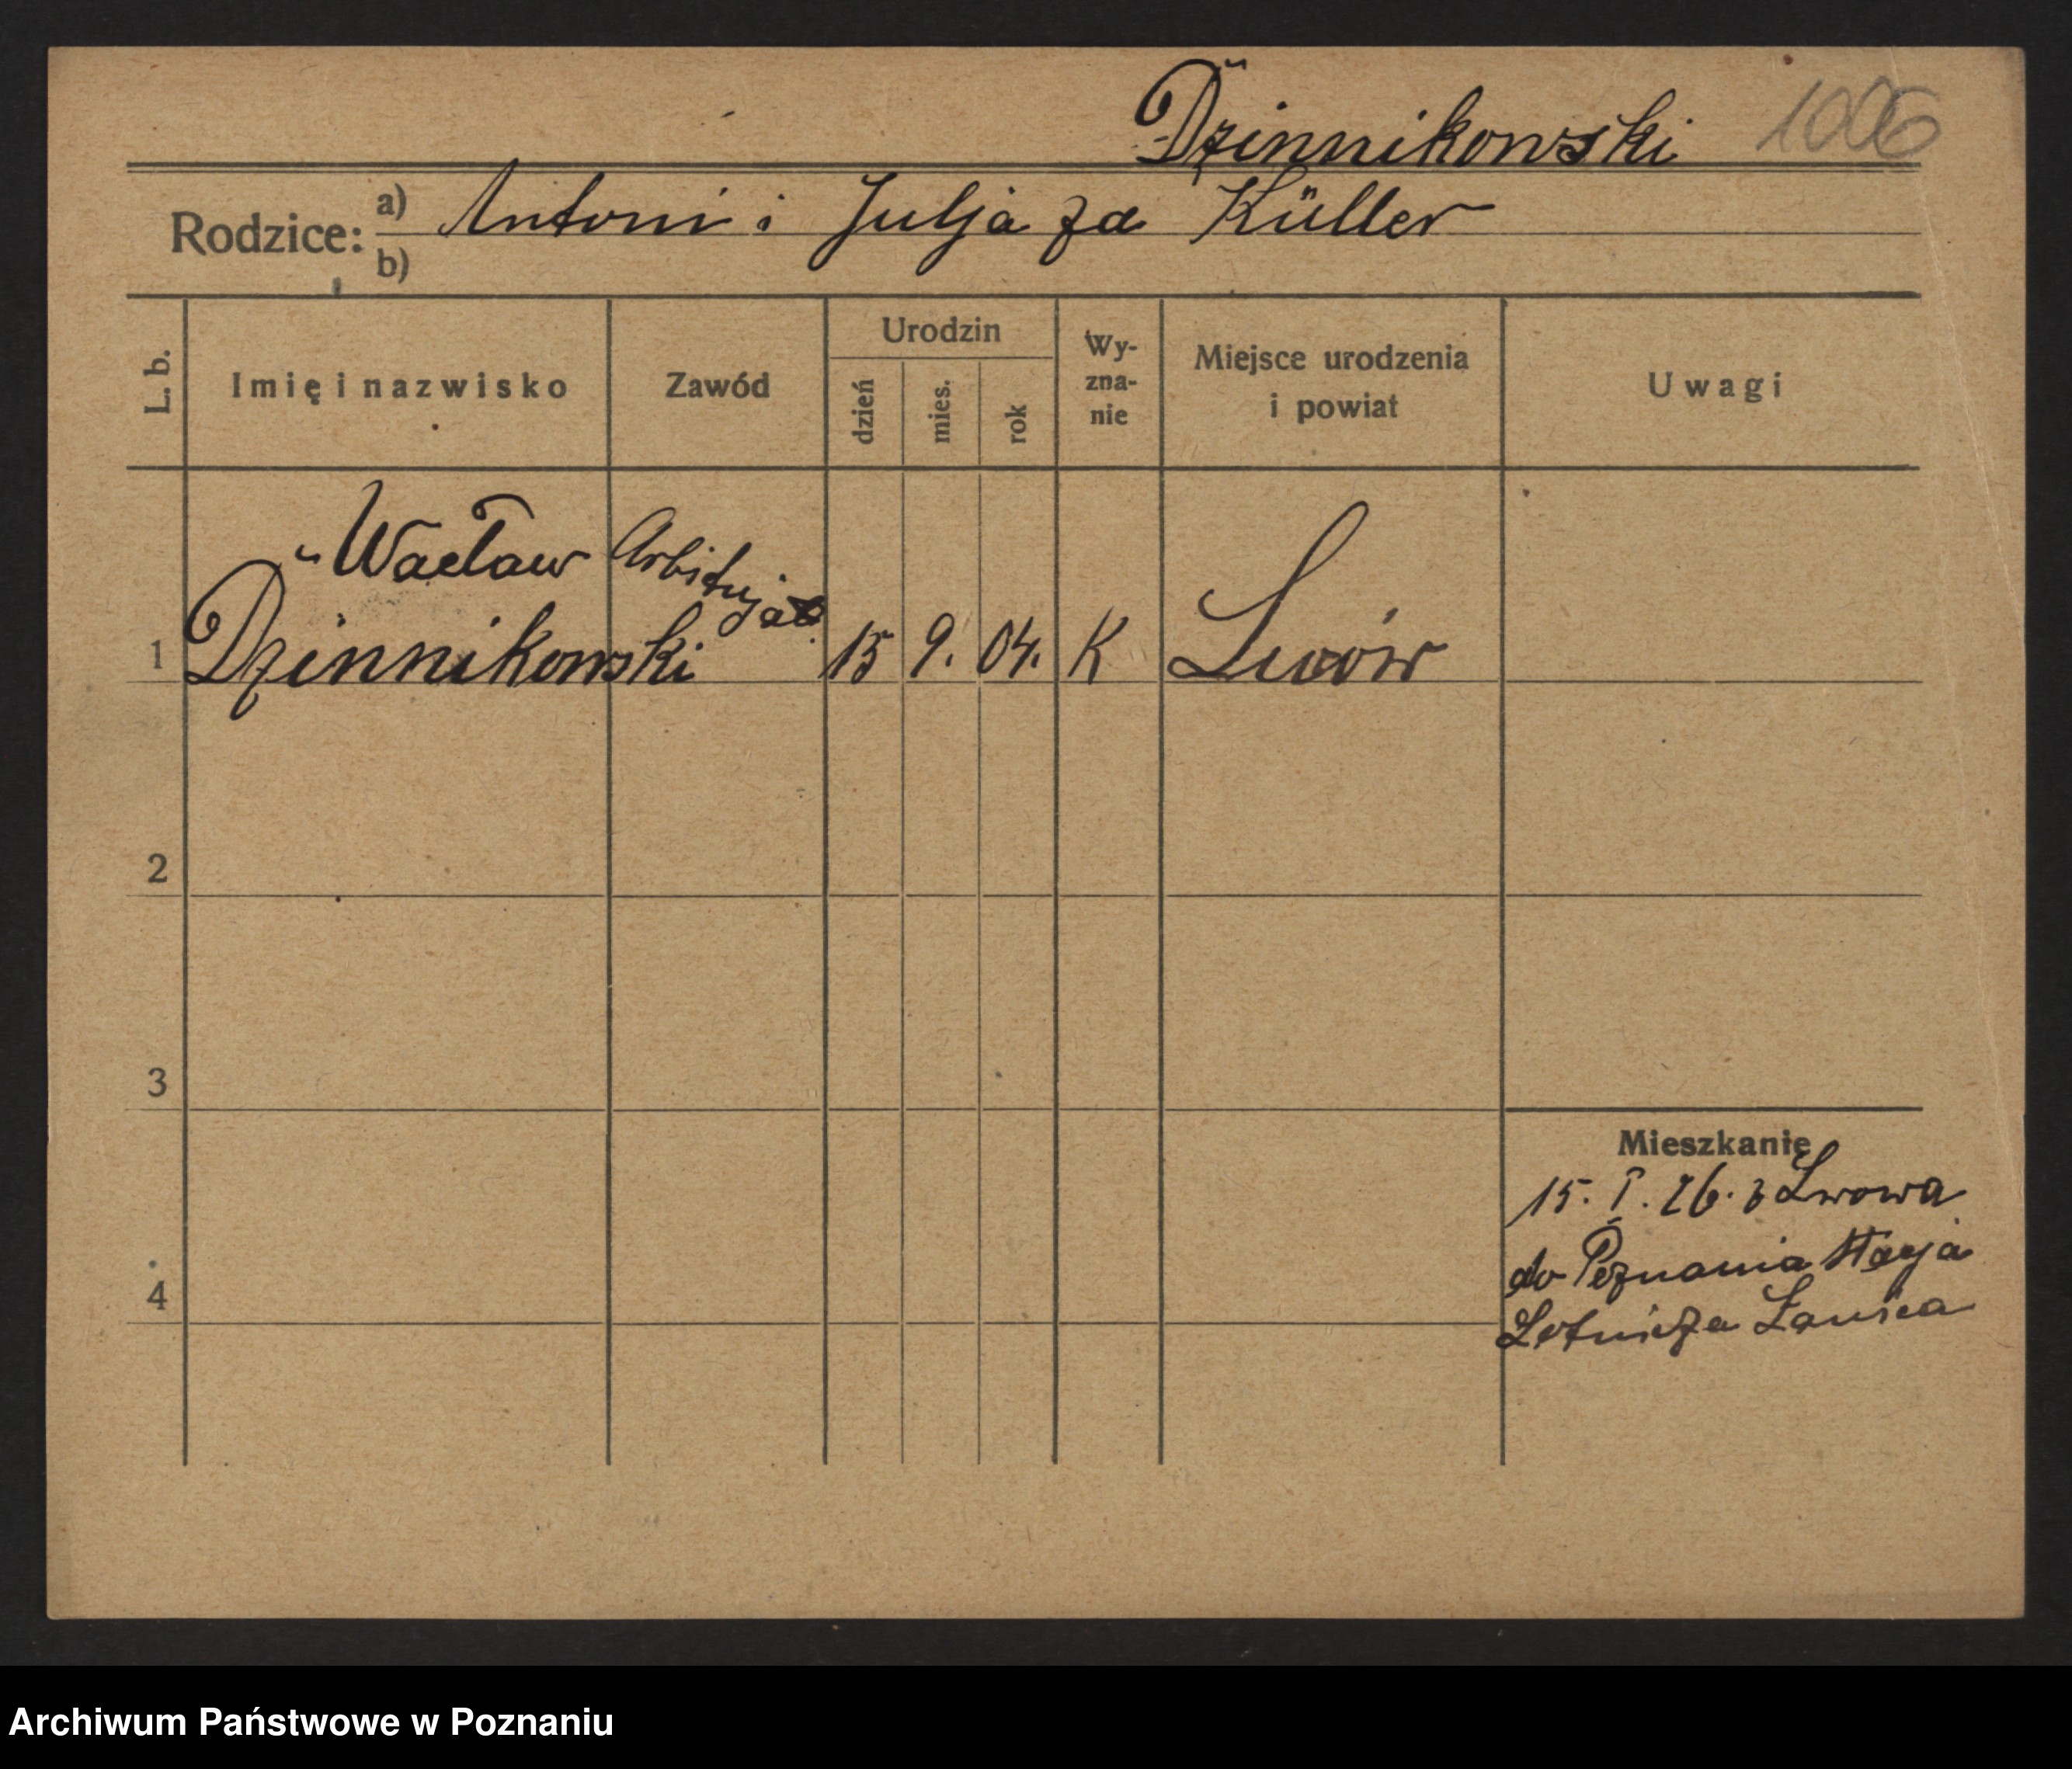 Dzinnikowski 1006
Rodzice: a) Antoni i Julja za Küller
b)
L. b. Imię i nazwisko Zawód Urodzin dzień mies. rok Wy-zna-nie Miejsce urodzenia i powiat Uwagi
Wacław
1 Dzinnikowski 15 9. 04. K Lwów
2
3
Mieszkanie
15. I. 26. z Lwowa
do Poznania Stacja
4
Lotnicza Ławica
Archiwum Państwowe w Poznaniu